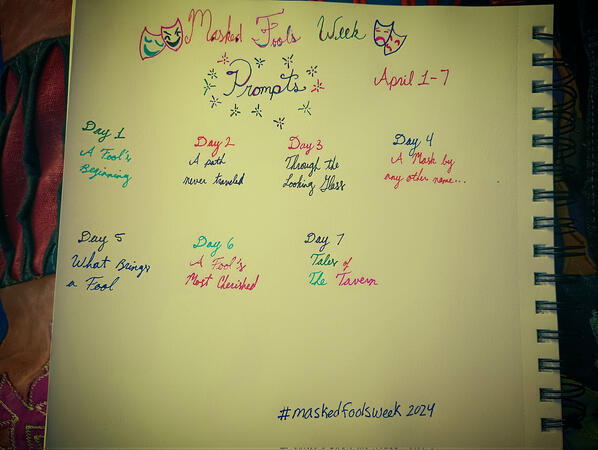 Masked Fools Week
Prompts
April 1-7
Day 1
A Fool's
Beginning
Day 2
A path
never traveled
Day 3
Through the
Looking Glass
Day 4
A Mask by
any other name...
Day 5
What Brings
a Fool
Day 6
A Fool's
Most Cherished
Day 7
Tales of
The Tavern
#maskedfoolsweek 2024